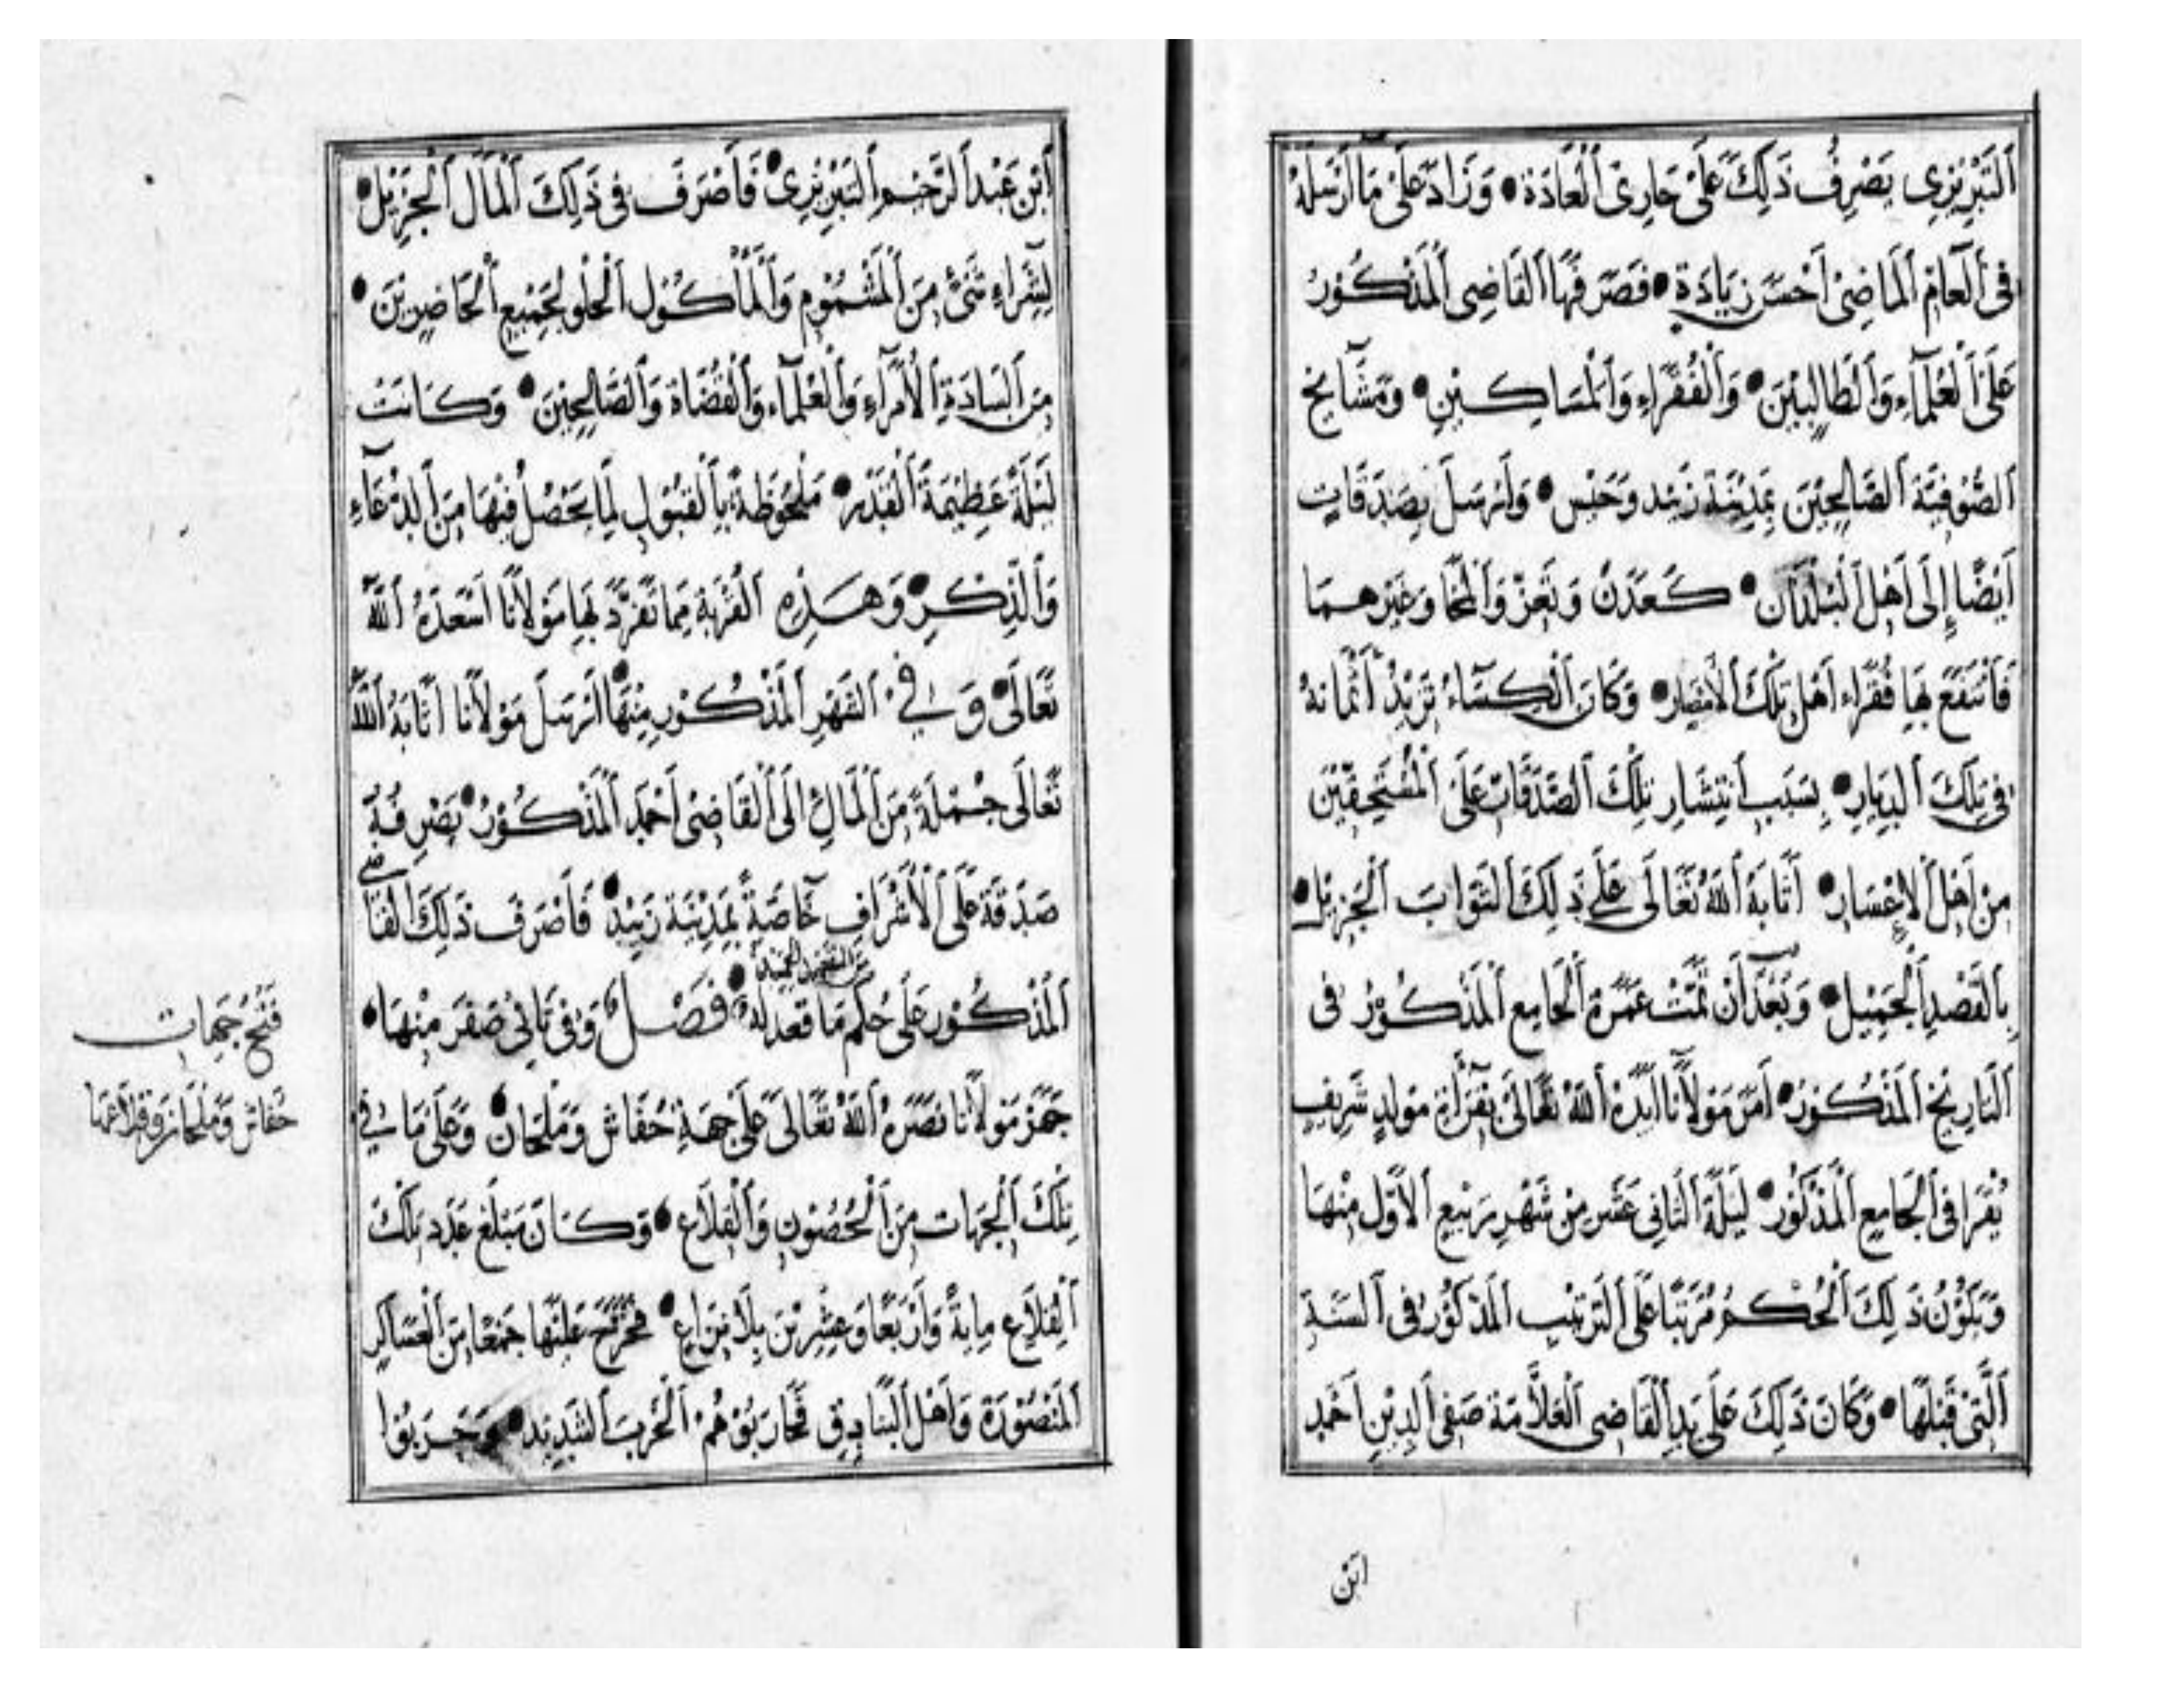 اَلتَّبْرِيزِى يَصْرِفُ ذَلِكَ عَلَى جَارِىَ اَلْعَادَة • وَزَادَ عَلَى مَا اَرْسَلَهُ
فِى اَلْعَامْ اَلْمَاضِىْ اَحْسَنَ زِيَادَةٍ • فَصَرَفَهَا اَلْقَاضِى اَلْمَذْكُوْرُ
عَلَى اَلْعُلَمَآءِ وَاَلطَّالِبِيْنَ • وَاَلْفُقَرَاءِ وَاَلْمَسَاكِيْنِ • وَمَشَآيخ
اَلصُّوْفِيَّة اَلصَّالِحِيْنَ بِمَدِيْنَة زَبِيْد وَحَيْس • وَاَرْسَلَ بِصَدَقَاتٍ
اَيْضًا اِلَى اَهْل اَلْبُلْدَان • كَعَدَنْ وَتَعِزْ وَاَلْمَخَا وَغَيْرهمَا
فَاَنْتَفَعَ بِهَا فُقَرَاء اَهْل تِلْكَ اَلْاَمْصَار • وَكَانَ اَلْكِسَآءُ تَزِيْدُ اَثْمَانهُ
فِى تِلْكَ اَلدِيَارِ • بِسَبَبِ اَنْتِشَارِ تِلْكَ اَلصَّدَقَات عَلَى اَلْمُسْتَحِقِّيْنَ
مِنْ اَهْل اَلاِعْسَار • اَثَابَهُ اَللّٰهُ تَعَالَى عَلَى ذَلِكَ اَلثَوَابَ اَلْجَزِيْل •
بِالْقَصْدِ اَلْجَمِيْل • وَبَعْدَ اَنْ تَمَّتْ عَمَرَة اَلْجَامِع اَلْمَذْكُوْرُ فى
اَلتَارِيْخ اَلْمَذْكُوْرُ • اَمَرَ مَوْلاَنَا اَيَّدَهُ اَللّٰهُ تَعَالَى بِقِرَأَةِ مَوْلِدٍ شَرِيفٍ
يُقْرَا فى اَلْجَامِع اَلْمَذْكُوْر • لَيْلَة اَلثَانِى عَشَر مِنْ شَهْرِ رَبِيْعِ اَلاَوَّل مِنْهَا
وَيَكُوْنُ ذَلِكَ اَلْحُكمُ مُرَتَبًا عَلَى اَلتَرْتِيْب اَلْمَذْكُوْر فى اَلسَنَةِ
اَلَّتِىْ قَبْلَهَا • وَكَانَ ذَلِكَ عَلَى يَدِ اَلْقَاضِى اَلْعَلاَّمَة صَفِى اَلدِيْن اَحْمَد
ابْن
اَبْن عَبْد اَلرَّحِيم اَلتَبْرِيْزِى • فَاَصْرَفَ فى ذَلِكَ اَلْمَالَ اَلْجَزِيْل •
لِشِرَاءِ شَىْءٍ مِنَ اَلْمَشْمُوْمِ وَاَلْمَأْكُوْلِ اَلْحُلْو لِجَمِيْعِ اَلْحَاضِرِيْنَ •
مِنَ اَلسَادَةِ اَلْاُمَرَآءِ وَاَلْعُلَمَآءِ وَاَلْقُضَاة وَاَلصَّالِحِيْنَ • وَكَانَتْ
لَيْلَةً عَظِيْمَةَ اَلْقَدْر • مَلْحُوْظَةً بِاَلْقَبُوْل لِمَا يَحْصُلُ فِيْهَا مِنَ اَلدُعَآءِ
وَاَلذِكْرِ • وَهَذِهِ اَلْقُرْبَة مِمَا تَفَرَّدَ بِهَا مَوْلاَنَا اَسْعَدَهُ اَللّٰهُ
تَعَالَى • وَفى اَلشَهْرِ اَلْمَذْكُوْر مِنْهَا اَرْسَلَ مَوْلاَنَا اَثَابَهُ اَللّٰهُ
تَعَالَى جُمْلَةً مِنَ اَلْمَالِ اِلَى اَلْقَاضِىْ اَحْمَد اَلْمَذْكُوْرُ • يَصْرِفُهُ
صَدَقَة عَلَى اَلْاَشْرَافِ خَاصَةً بِمَدِيْنَة زَبِيْد • فَاَصْرَفَ ذَلِكَ اَلْقَاضى
اَلْمَذْكُوْر عَلَى حُكْمِ مَا قَصَدَ لَهُ • فَصْل وَفى ثَانِى صَفَر مِنْهَا •
جَهَّزَ مَوْلاَنَا نَصَرَهُ اَللّٰهُ تَعَالَى عَلَى جِهَةِ حُفَاش وَمَلْحَان • وَعَلَى مَا فِى
تِلْكَ اَلْجِهَات مِنَ اَلْحُصُوْنِ وَاَلْقِلاَعِ • وَكَانَ مَبْلَغ عَدَد تِلْكَ
اَلْقِلاَع مِايَةً وَاَرْبَعًا وَعِشْرِيْنَ بِلاَ نِزَاعِ • عَلَيْهَا جَمْعًا مِنَ اَلْعَسَاكِرِ
اَلْمَنْصُوْرَة وَاَهْل اَلْبَنَادِق فَحَارَبُوْهُمْ اَلْحَرْبَ اَلشَدِيْد
فَتْحُ جِهَات
حُفَاش وَمَلْحَان وَقِلاَعهَا